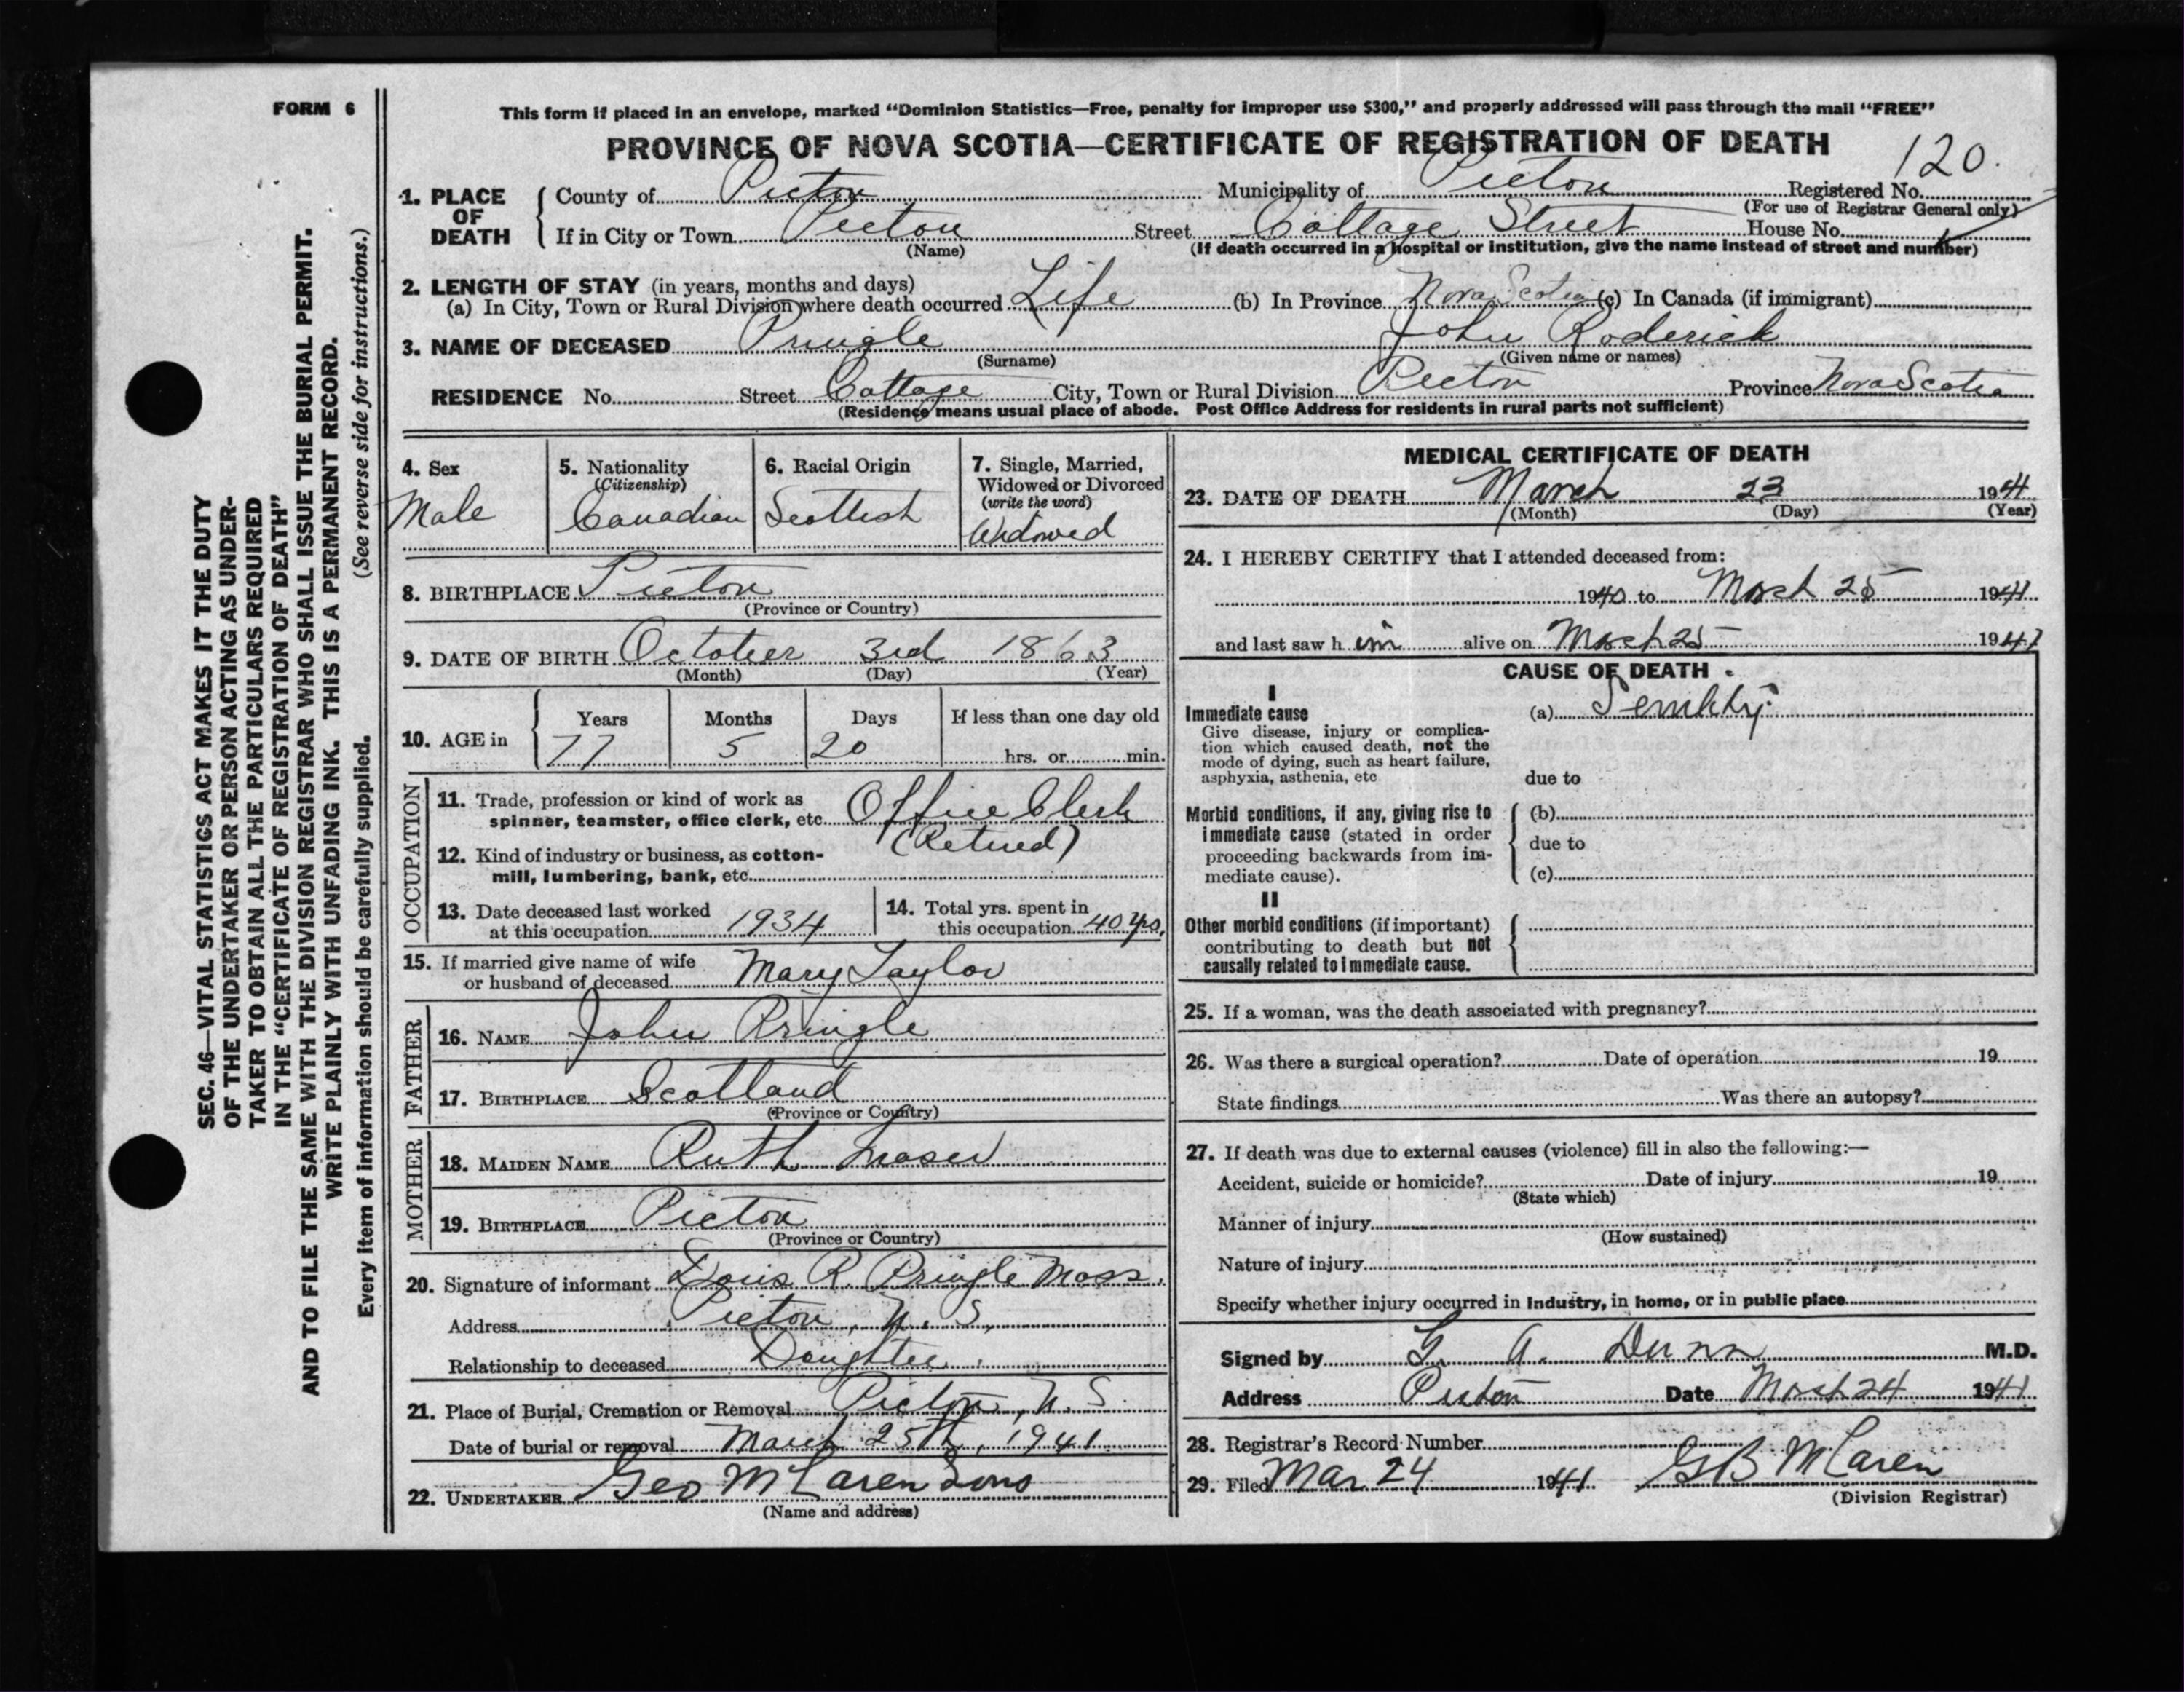 FORM 6
This form if placed in an envelope, marked "Dominion Statistics—Free, penalty for improper use $300," and properly addressed will pass through the mail "FREE"
PROVINCE OF NOVA SCOTIA—CERTIFICATE OF REGISTRATION OF DEATH
120.
1. PLACE OF DEATH County of Pictou Municipality of Pictou Registered No.
(For use of Registrar General only)
If in City or Town Pictou Street Cottage Street House No.
(Name) (If death occurred in a hospital or institution, give the name instead of street and number)
2. LENGTH OF STAY (in years, months and days)
(a) In City, Town or Rural Division where death occurred Life (b) In Province Nova Scotia (c) In Canada (if immigrant)
3. NAME OF DECEASED Pringle John Roderick
(Surname) (Given name or names)
RESIDENCE No. Street Cottage City, Town or Rural Division Pictou Province Nova Scotia
(Residence means usual place of abode. Post Office Address for residents in rural parts not sufficient)
4. Sex
Male
5. Nationality
(Citizenship)
Canadian
6. Racial Origin
Scottish
7. Single, Married,
Widowed or Divorced
(write the word)
Widowed
8. BIRTHPLACE Pictou
(Province or Country)
9. DATE OF BIRTH October 3rd 1863
(Month) (Day) (Year)
10. AGE in Years Months Days If less than one day old
77 5 20 hrs. or min.
OCCUPATION
11. Trade, profession or kind of work as
spinner, teamster, office clerk, etc. Office Clerk
(Retired)
12. Kind of industry or business, as cotton-
mill, lumbering, bank, etc.
13. Date deceased last worked
at this occupation 1934
14. Total yrs. spent in
this occupation 40 yrs.
15. If married give name of wife
or husband of deceased Mary Taylor
FATHER
16. NAME John Pringle
17. BIRTHPLACE Scotland
(Province or Country)
MOTHER
18. MAIDEN NAME Ruth Fraser
19. BIRTHPLACE Pictou
(Province or Country)
20. Signature of informant Doris R. Pringle Moss.
Address Pictou, N. S.
Relationship to deceased Daughter.
21. Place of Burial, Cremation or Removal Pictou, N. S.
Date of burial or removal March 25th, 1941
22. UNDERTAKER Geo McLaren Sons
(Name and address)
MEDICAL CERTIFICATE OF DEATH
23. DATE OF DEATH March 23 1941
(Month) (Day) (Year)
24. I HEREBY CERTIFY that I attended deceased from:
1940 to March 25 1941
and last saw h im alive on March 25 1941
CAUSE OF DEATH
I
Immediate cause
Give disease, injury or complica-
tion which caused death, not the
mode of dying, such as heart failure,
asphyxia, asthenia, etc.
(a) Senility
due to
Morbid conditions, if any, giving rise to
immediate cause (stated in order
proceeding backwards from im-
mediate cause).
(b)
due to
(c)
II
Other morbid conditions (if important)
contributing to death but not
causally related to immediate cause.
25. If a woman, was the death associated with pregnancy?
26. Was there a surgical operation? Date of operation 19
State findings Was there an autopsy?
27. If death was due to external causes (violence) fill in also the following:—
Accident, suicide or homicide? Date of injury 19
(State which)
Manner of injury
(How sustained)
Nature of injury
Specify whether injury occurred in Industry, in home, or in public place
Signed by G. A. Dunn M.D.
Address Pictou Date March 24 1941
28. Registrar's Record Number
29. Filed Mar 24 1941 GB McLaren
(Division Registrar)
SEC. 46—VITAL STATISTICS ACT MAKES IT THE DUTY
OF THE UNDERTAKER OR PERSON ACTING AS UNDER-
TAKER TO OBTAIN ALL THE PARTICULARS REQUIRED
IN THE "CERTIFICATE OF REGISTRATION OF DEATH"
AND TO FILE THE SAME WITH THE DIVISION REGISTRAR WHO SHALL ISSUE THE BURIAL PERMIT.
WRITE PLAINLY WITH UNFADING INK. THIS IS A PERMANENT RECORD.
Every item of information should be carefully supplied. (See reverse side for instructions.)